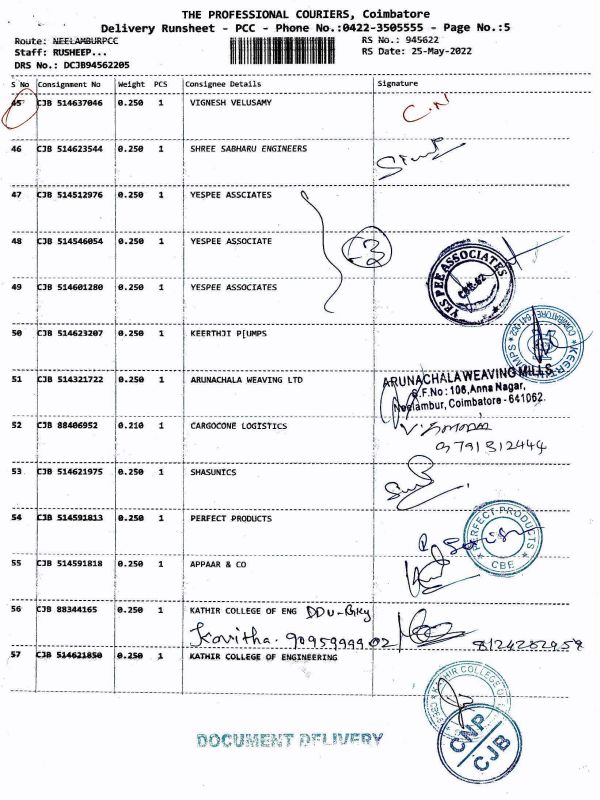 THE PROFESSIONAL COURIERS, Coimbatore
Delivery Runsheet - PCC - Phone No.:0422-3505555 - Page No.:5
Route: NEELAMBURPCC
RS No.: 945622
Staff: RUSHEEP...
RS Date: 25-May-2022
DRS No.: DCJB94562205
S No Consignment No Weight PCS Consignee Details Signature
45 CJB 514637046 0.250 1 VIGNESH VELUSAMY C.N
46 CJB 514623544 0.250 1 SHREE SABHARU ENGINEERS
47 CJB 514512976 0.250 1 YESPEE ASSCIATES
48 CJB 514546054 0.250 1 YESPEE ASSOCIATE
YES PEE ASSOCIATES
49 CJB 514601280 0.250 1 YESPEE ASSOCIATES
50 CJB 514623207 0.250 1 KEERTHJI P[UMPS
51 CJB 514321722 0.250 1 ARUNACHALA WEAVING LTD
ARUNACHALA WEAVING MILLS
S.F.No: 108, Anna Nagar,
Neelambur, Coimbatore - 641062.
52 CJB 88406952 0.210 1 CARGOCONE LOGISTICS
9791312444
53 CJB 514621975 0.250 1 SHASUNICS
54 CJB 514591813 0.250 1 PERFECT PRODUCTS
PERFECT PRODUCTS
CBE
55 CJB 514591818 0.250 1 APPAAR & CO
56 CJB 88344165 0.250 1 KATHIR COLLEGE OF ENG DDU-GKY
Kavitha. 9095999902
8124282958
57 CJB 514621850 0.250 1 KATHIR COLLEGE OF ENGINEERING
KATHIR COLLEGE OF
CNP
CJB
DOCUMENT DELIVERY